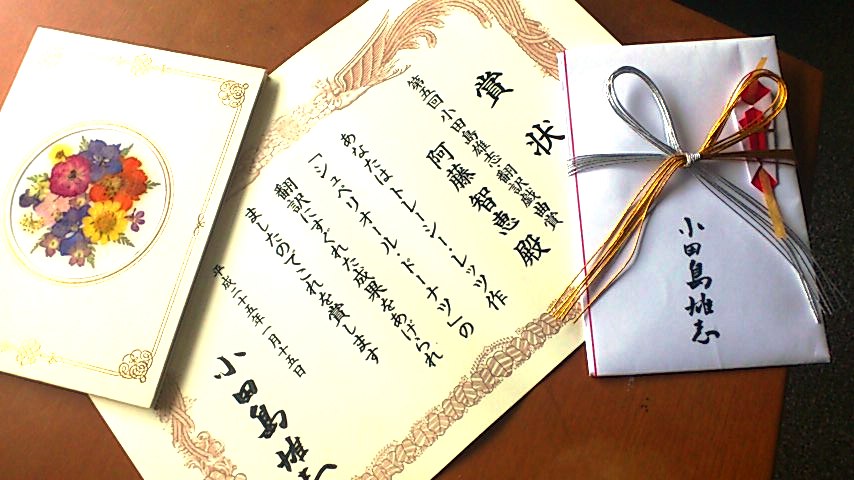 賞状
第五回小田島雄志翻訳戯曲賞
阿藤智恵殿
あなたはトレーシー・レッツ作
「シュペリオール・ドーナツ」の
翻訳にすぐれた成果をあげられ
ましたのでこれを賞します
平成二十五年一月十五日
小田島雄志
小田島雄志